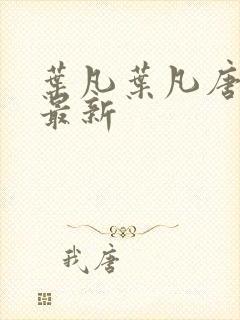 葉凡葉凡唐
最新
我唐